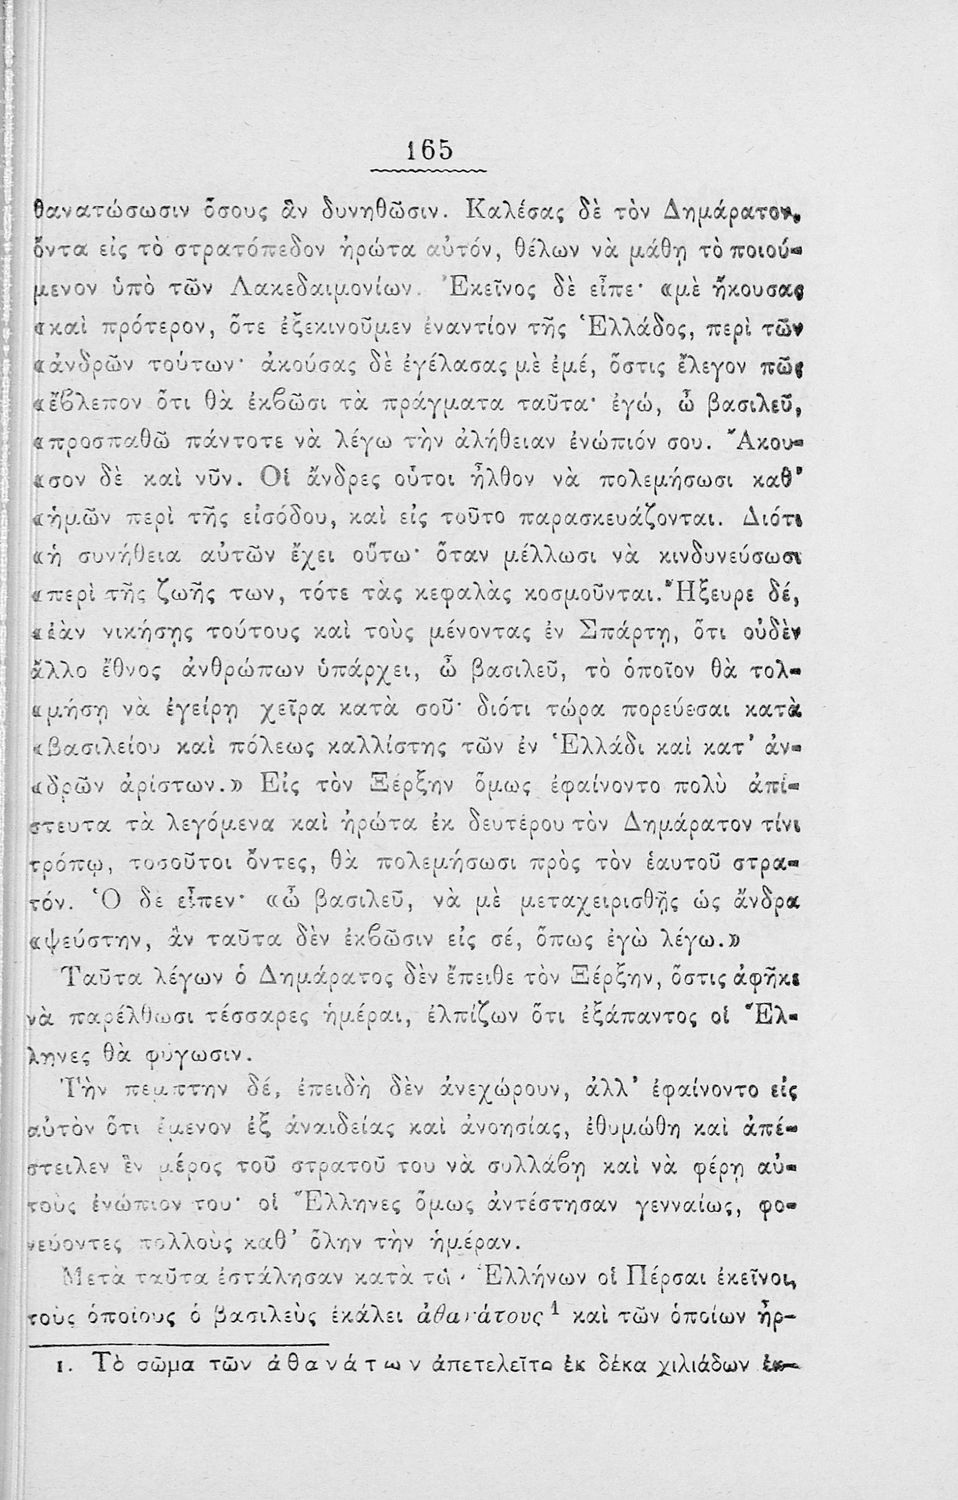 165
θανατώσωσιν ὅσους ἂν δυνηθῶσιν. Καλέσας δὲ τὸν Δημάρατον,
ὄντα εἰς τὸ στρατόπεδον ἠρώτα αὐτόν, θέλων νὰ μάθῃ τὸ ποιού-
μενον ὑπὸ τῶν Λακεδαιμονίων. Ἐκεῖνος δὲ εἶπε· «μὲ ἤκουσας
«καὶ πρότερον, ὅτε ἐξεκινοῦμεν ἐναντίον τῆς Ἑλλάδος, περὶ τῶν
«ἀνδρῶν τούτων· ἀκούσας δὲ ἐγέλασας μὲ ἐμέ, ὅστις ἔλεγον πῶς
«ἔβλεπον ὅτι θὰ ἐκβῶσι τὰ πράγματα ταῦτα· ἐγώ, ὦ βασιλεῦ,
«προσπαθῶ πάντοτε νὰ λέγω τὴν ἀλήθειαν ἐνώπιόν σου. Ἄκου-
«σον δὲ καὶ νῦν. Οἱ ἄνδρες οὗτοι ἦλθον νὰ πολεμήσωσι καθ'
«ἡμῶν περὶ τῆς εἰσόδου, καὶ εἰς τοῦτο παρασκευάζονται. Διότι
«ἡ συνήθεια αὐτῶν ἔχει οὕτω· ὅταν μέλλωσι νὰ κινδυνεύσωσι
«περὶ τῆς ζωῆς των, τότε τὰς κεφαλὰς κοσμοῦνται. Ἤξευρε δέ,
«ἐὰν νικήσῃς τούτους καὶ τοὺς μένοντας ἐν Σπάρτῃ, ὅτι οὐδὲν
ἄλλο ἔθνος ἀνθρώπων ὑπάρχει, ὦ βασιλεῦ, τὸ ὁποῖον θὰ τολ-
«μήσῃ νὰ ἐγείρῃ χεῖρα κατὰ σοῦ· διότι τώρα πορεύεσαι κατὰ
«βασιλείου καὶ πόλεως καλλίστης τῶν ἐν Ἑλλάδι καὶ κατ' ἀν-
«δρῶν ἀρίστων.» Εἰς τὸν Ξέρξην ὅμως ἐφαίνοντο πολὺ ἀπί-
στευτα τὰ λεγόμενα καὶ ἠρώτα ἐκ δευτέρου τὸν Δημάρατον τίνι
τρόπῳ, τοσοῦτοι ὄντες, θὰ πολεμήσωσι πρὸς τὸν ἑαυτοῦ στρα-
τόν. Ὁ δὲ εἶπεν· «ὦ βασιλεῦ, νὰ μὲ μεταχειρισθῇς ὡς ἄνδρα
«ψεύστην, ἂν ταῦτα δὲν ἐκβῶσιν εἰς σέ, ὅπως ἐγὼ λέγω.»
Ταῦτα λέγων ὁ Δημάρατος δὲν ἔπειθε τὸν Ξέρξην, ὅστις ἀφῆκε
νὰ παρέλθωσι τέσσαρες ἡμέραι, ἐλπίζων ὅτι ἐξάπαντος οἱ Ἕλ-
ληνες θὰ φύγωσιν.
Τὴν πέμπτην δέ, ἐπειδὴ δὲν ἀνεχώρουν, ἀλλ' ἐφαίνοντο εἰς
αὐτὸν ὅτι ἔμενον ἐξ ἀναιδείας καὶ ἀνοησίας, ἐθυμώθη καὶ ἀπέ-
στειλεν ἓν μέρος τοῦ στρατοῦ του νὰ συλλάβῃ καὶ νὰ φέρῃ αὐ-
τοὺς ἐνώπιόν του· οἱ Ἕλληνες ὅμως ἀντέστησαν γενναίως, φο-
νεύοντες πολλοὺς καθ' ὅλην τὴν ἡμέραν.
Μετὰ ταῦτα ἐστάλησαν κατὰ τῶν Ἑλλήνων οἱ Πέρσαι ἐκεῖνοι,
τοὺς ὁποίους ὁ βασιλεὺς ἐκάλει ἀθανάτους¹ καὶ τῶν ὁποίων ἦρ-
1. Τὸ σῶμα τῶν ἀθανάτων ἀπετελεῖτο ἐκ δέκα χιλιάδων ἐκ-